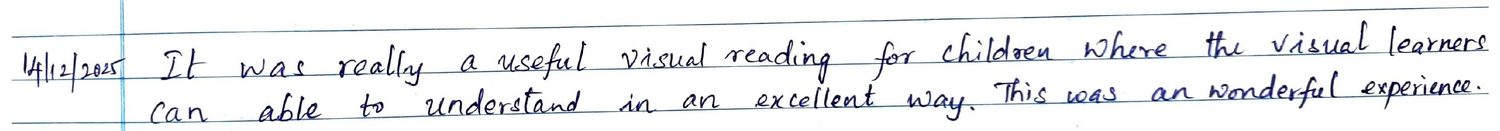 14/12/2025 It was really a useful visual reading for children where the visual learners
can able to understand in an excellent way. This was an wonderful experience.